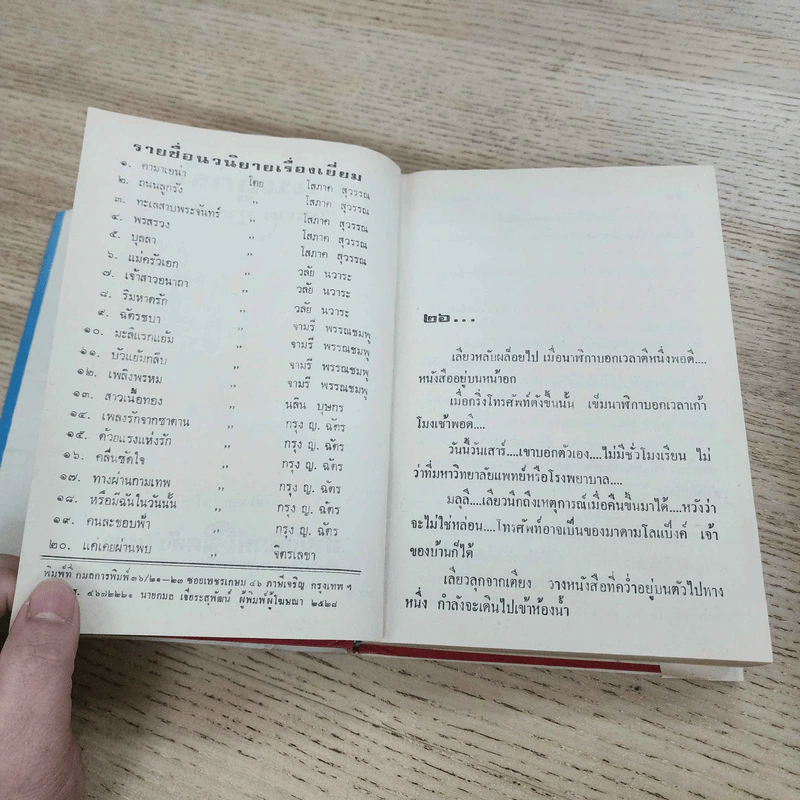 รายชื่อนวนิยายเรื่องเยี่ยม
๑. คามาเอน่า โดย โสภาค สุวรรณ
๒. ถนนลูกรัง ,, โสภาค สุวรรณ
๓. ทะเลสาบพระจันทร์ ,, โสภาค สุวรรณ
๔. พรสรวง ,, โสภาค สุวรรณ
๕. ปุลลา ,, โสภาค สุวรรณ
๖. แม่ครัวเอก ,, วลัย นวาระ
๗. เจ้าสาวอนาถา ,, วลัย นวาระ
๘. ริมหาดรัก ,, วลัย นวาระ
๙. ฉัตรชบา ,, จามรี พรรณชมพู
๑๐. มะลิแรกแย้ม ,, จามรี พรรณชมพู
๑๑. บัวแย้มกลีบ ,, จามรี พรรณชมพู
๑๒. เพลิงพรหม ,, จามรี พรรณชมพู
๑๓. สาวเนื้อทอง ,, นลิน บุษกร
๑๔. เพลงรักจากซาตาน ,, กรุง ญ. ฉัตร
๑๕. ด้วยแรงแห่งรัก ,, กรุง ญ. ฉัตร
๑๖. คลื่นซัดใจ ,, กรุง ญ. ฉัตร
๑๗. ทางผ่านกามเทพ ,, กรุง ญ. ฉัตร
๑๘. หรือมีฉันในวันนั้น ,, กรุง ญ. ฉัตร
๑๙. คนละขอบฟ้า ,, กรุง ญ. ฉัตร
๒๐. แค่เคยผ่านพบ ,, จิตรเลขา
พิมพ์ที่ กมลการพิมพ์ ๓๖/๒๑–๒๓ ซอยเพชรเกษม ๔๖ ภาษีเจริญ กรุงเทพฯ
ร. ๔๖๗๒๒๒๑ นายกมล เจียระสุพัฒน์ ผู้พิมพ์ผู้โฆษณา ๒๕๒๘
๒๖...
เลี่ยวหลับผล็อยไป เมื่อนาฬิกาบอกเวลาตีหนึ่งพอดี....
หนังสืออยู่บนหน้าอก
เมื่อกริ่งโทรศัพท์ดังขึ้นนั้น เข็มนาฬิกาบอกเวลาเก้า
โมงเช้าพอดี....
วันนี้วันเสาร์....เขาบอกตัวเอง....ไม่มีชั่วโมงเรียน ไม่
ว่าที่มหาวิทยาลัยแพทย์หรือโรงพยาบาล....
มลุลี....เลี่ยวนึกถึงเหตุการณ์เมื่อคืนขึ้นมาได้....หวังว่า
จะไม่ใช่หล่อน....โทรศัพท์อาจเป็นของมาดามโลแบ็งค์ เจ้า
ของบ้านก็ได้
เลี่ยวลุกจากเตียง วางหนังสือที่คว่ำอยู่บนตัวไปทาง
หนึ่ง กำลังจะเดินไปเข้าห้องน้ำ